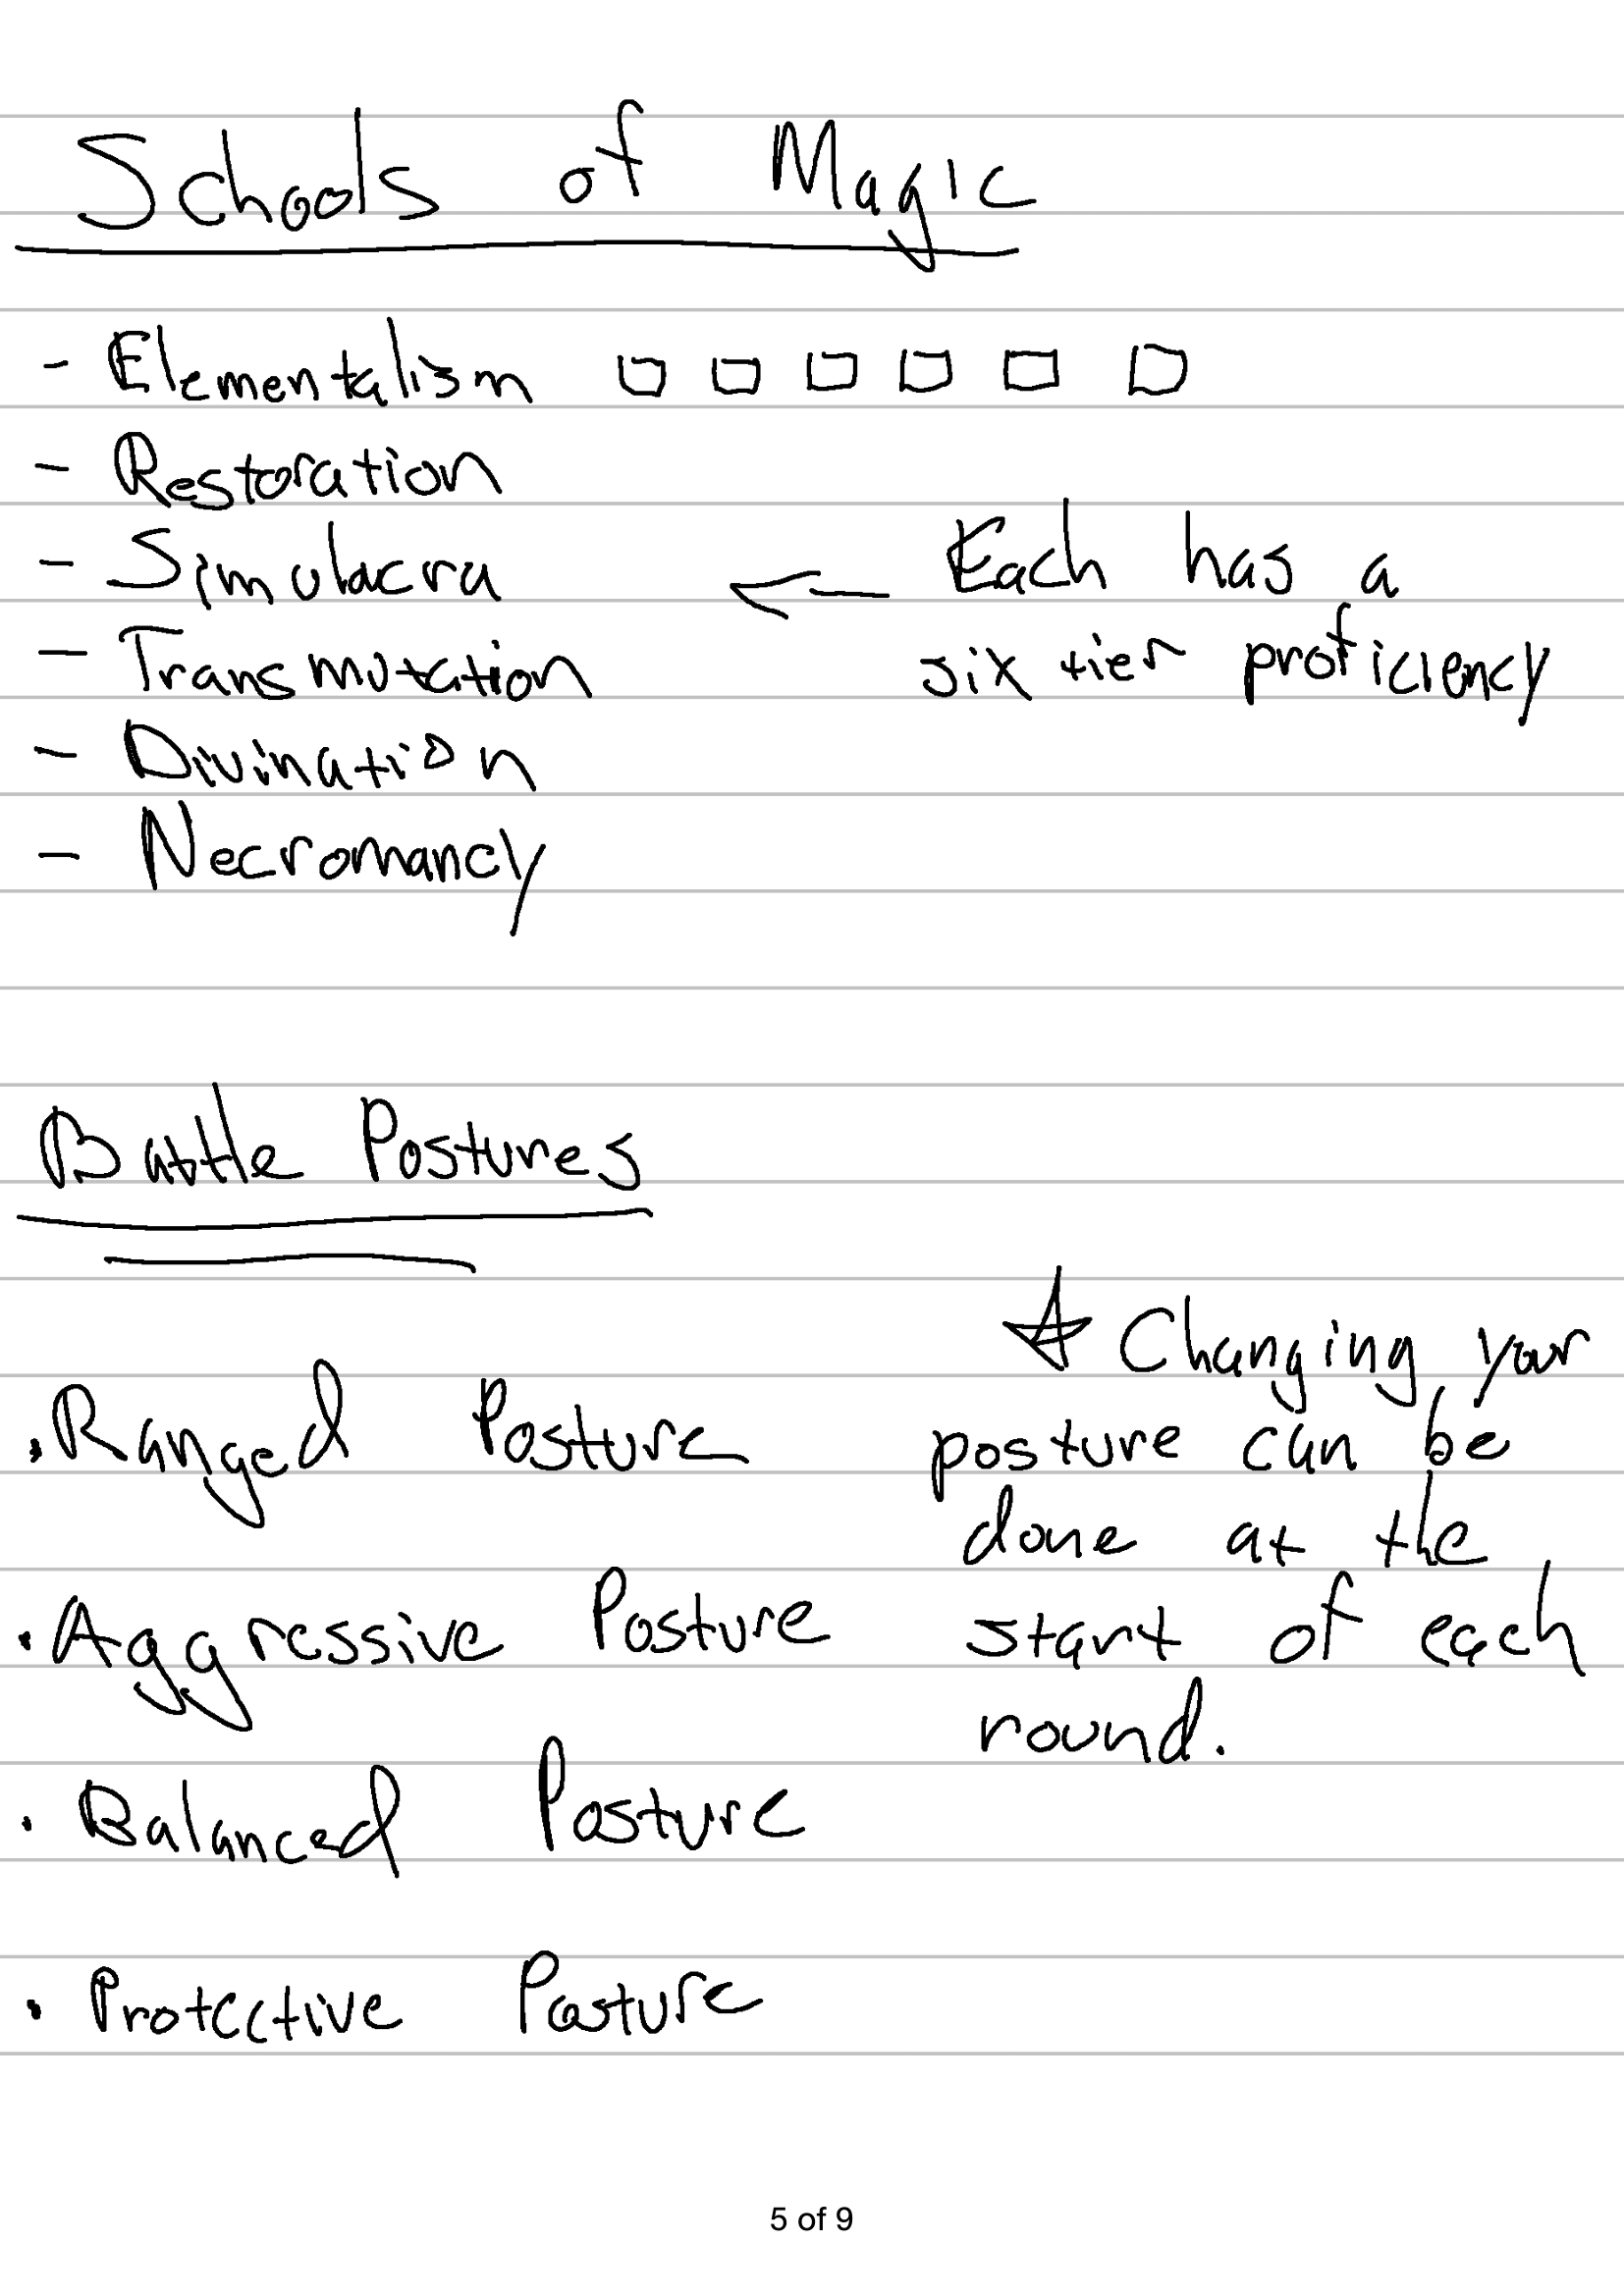 Schools of Magic
- Elementalism □ □ □ □ □ □
- Restoration
- Simulacra ← Each has a
- Transmutation six tier proficiency
- Divination
- Necromancy
Battle Postures
☆ Changing your
• Ranged Posture posture can be
done at the
• Aggressive Posture start of each
round.
• Balanced Posture
• Protective Posture
5 of 9